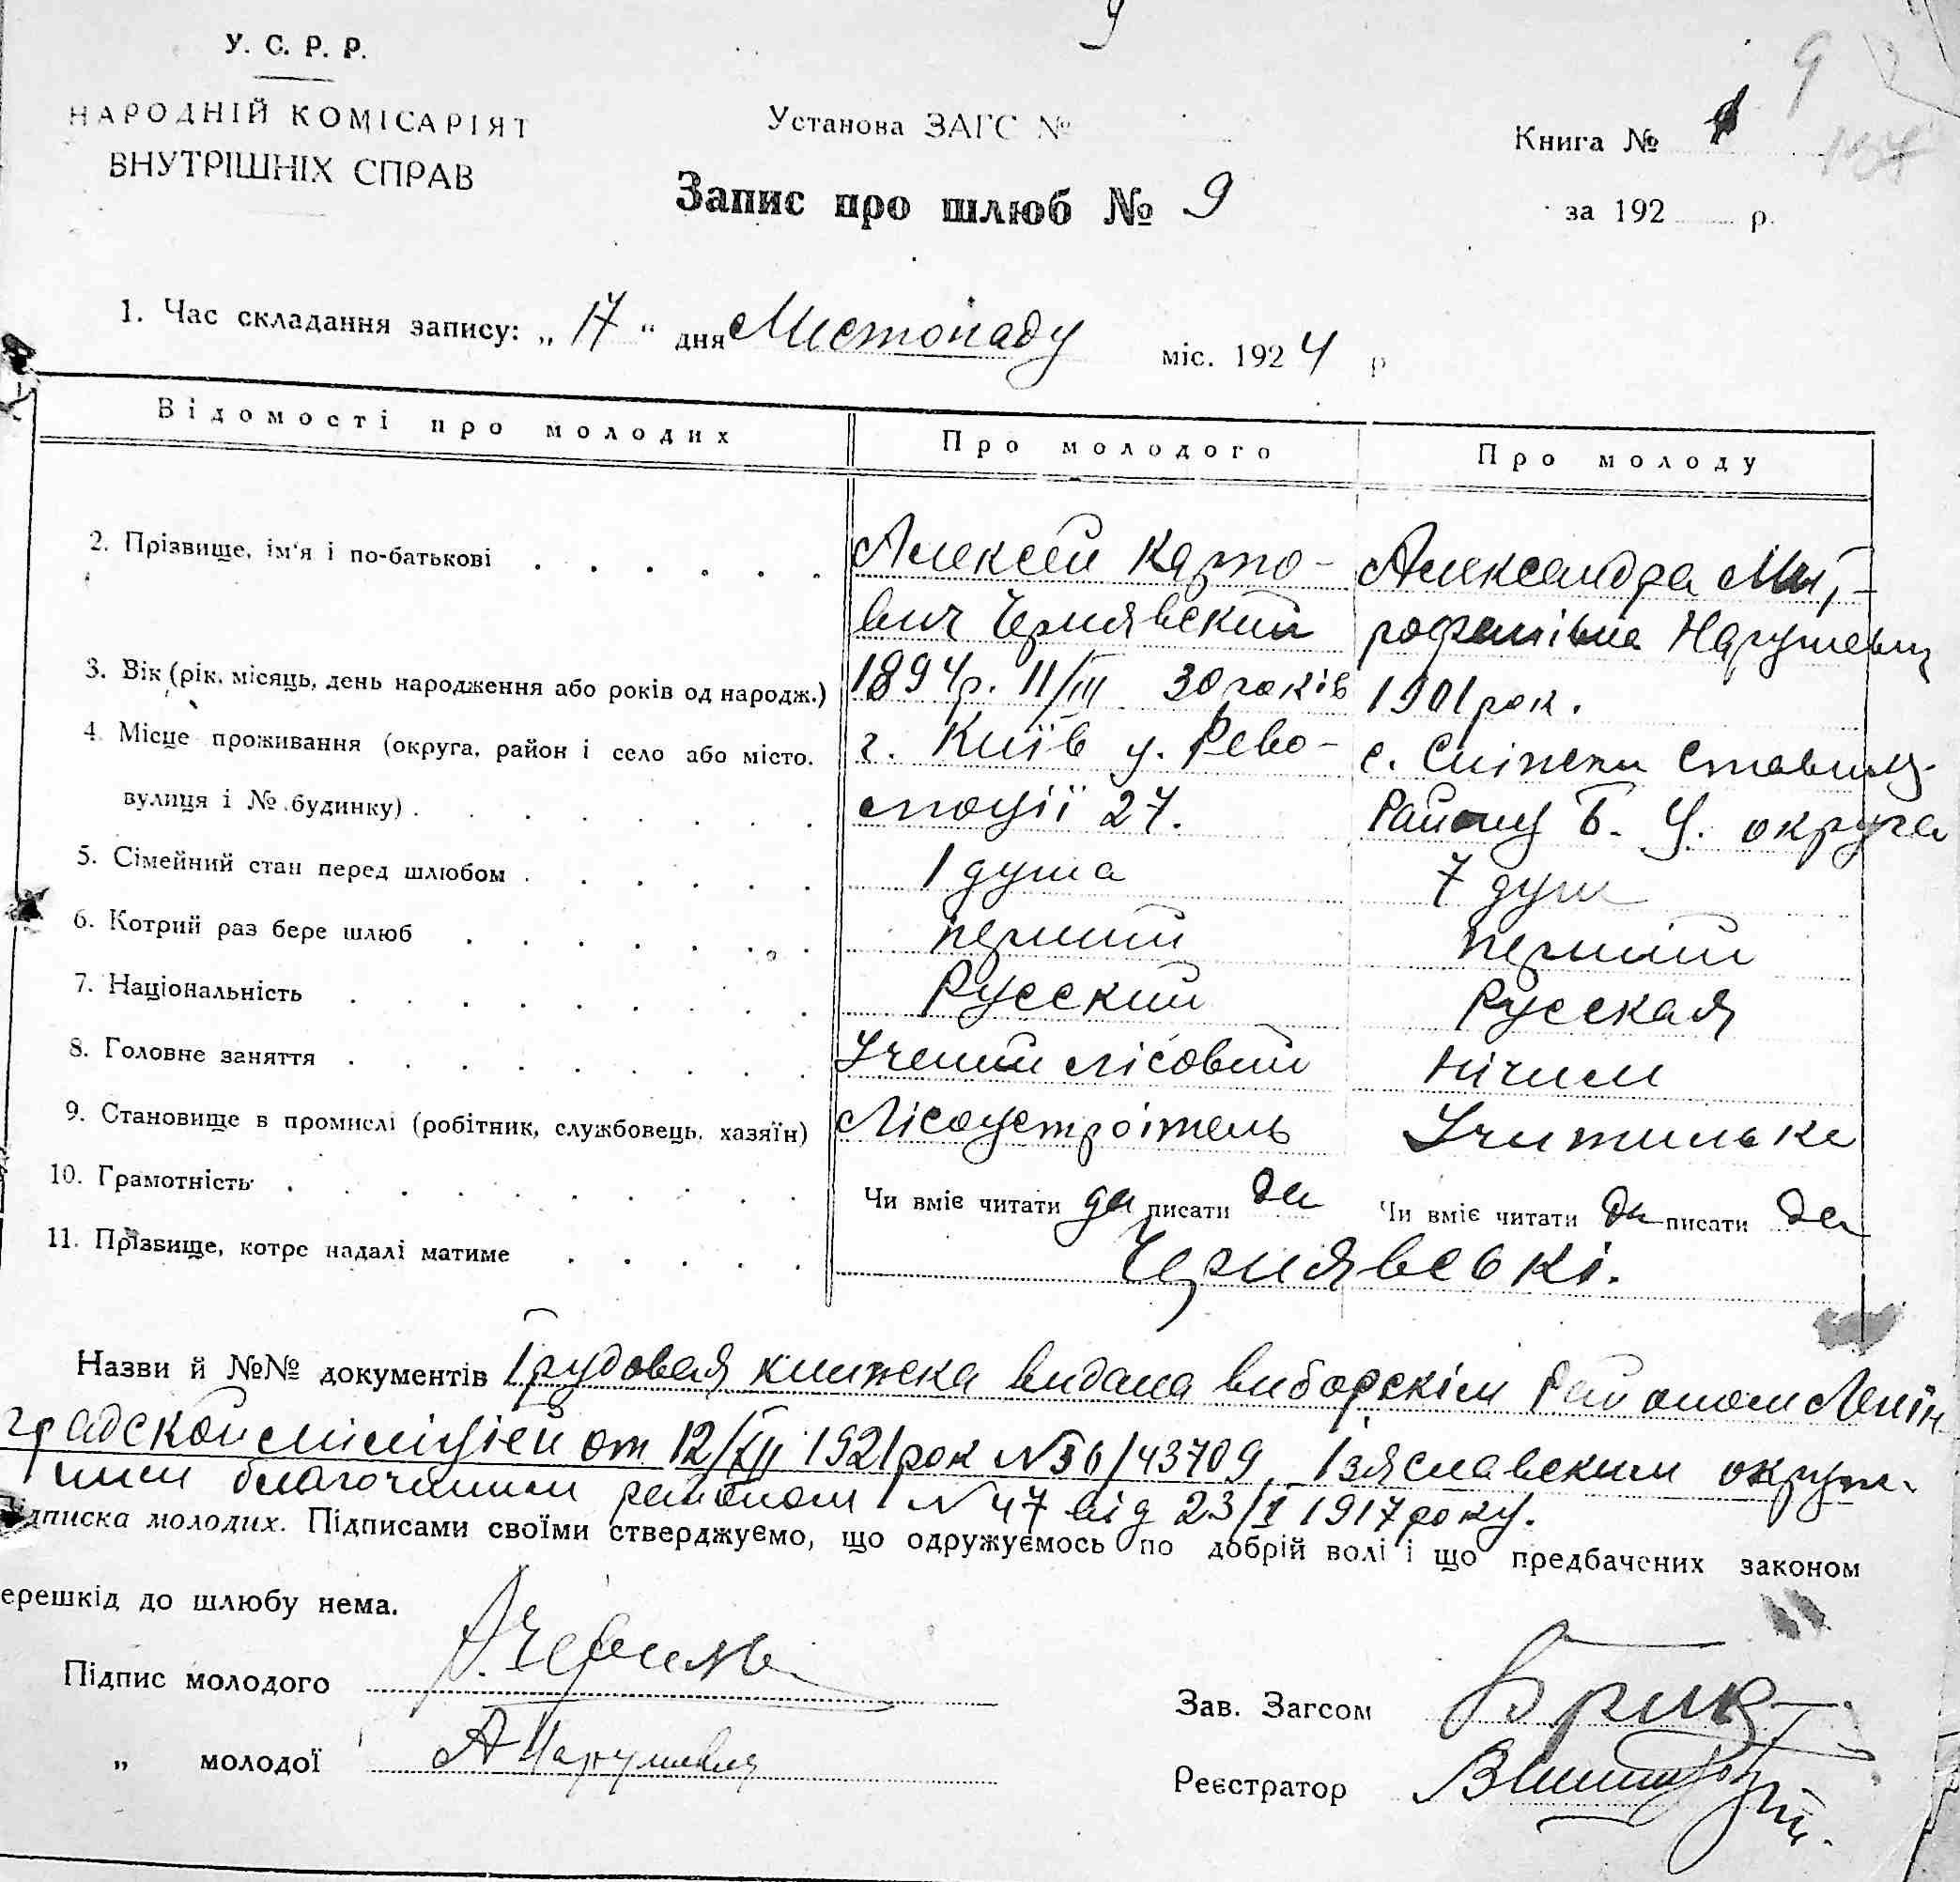 9
У. С. Р. Р.
НАРОДНІЙ КОМІСАРІЯТ
ВНУТРІШНІХ СПРАВ
Установа ЗАГС №
Запис про шлюб № 9
Книга №
9
за 192 р.
1. Час складання запису: „ 17 “ дня Листопаду міс. 1924 р
Відомості про молодих Про молодого Про молоду
2. Прізвище, ім'я і по-батькові Алексей Карпо- Александра Мит-
вич Чернявский рофанівна Нарушевич
3. Вік (рік, місяць, день народження або років од народж.) 1894р. 11/III 30 років 1901 рок.
4. Місце проживання (округа, район і село або місто, г. Київ у. Рево- с. Сніжки Ставищ.
вулиця і № будинку) люції 27. Району Б. Ц. округа
5. Сімейний стан перед шлюбом 1 душа 7 душ
6. Котрий раз бере шлюб перший перший
7. Національність Русский Русская
8. Головне заняття Учений лісовий нічим
9. Становище в промислі (робітник, службовець, хазяїн) Лісоустроітель Учителька
10. Грамотність Чи вміє читати да писати да Чи вміє читати да писати да
11. Прізвище, котре надалі матиме Чернявські.
Назви й №№ документів Трудовая книжка видана виборскім Районом Ленін
градской міліціей от 12/XII 1921 рок №36/43709, Ізяславским окруж.
ним благочинним районом №47 від 23/I 1917 року.
ідписка молодих. Підписами своїми стверджуємо, що одружуємось по добрій волі і що предбачених законом
ерешкід до шлюбу нема.
Підпис молодого
„ молодої А Нарушевич
Зав. Загсом
Реєстратор